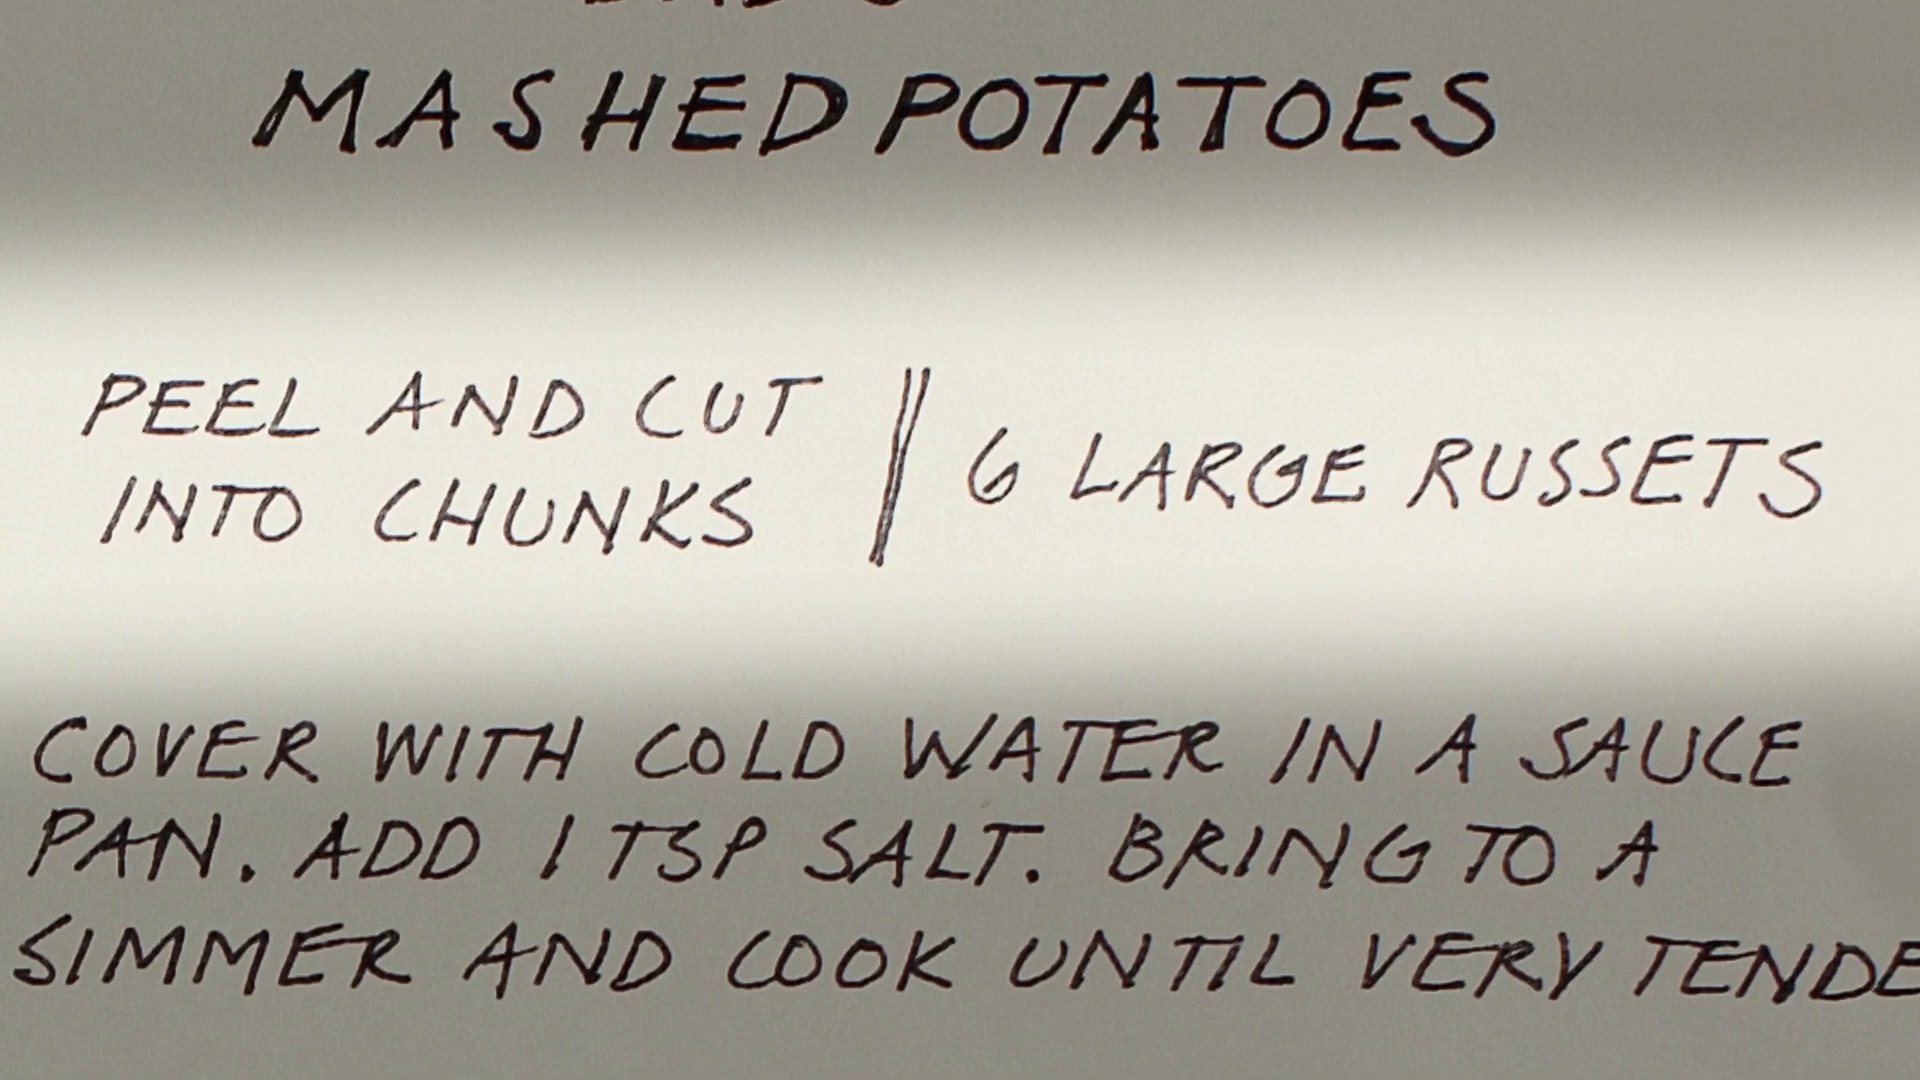 MASHED POTATOES
PEEL AND CUT
INTO CHUNKS
6 LARGE RUSSETS
COVER WITH COLD WATER IN A SAUCE
PAN. ADD 1 TSP SALT. BRING TO A
SIMMER AND COOK UNTIL VERY TENDE